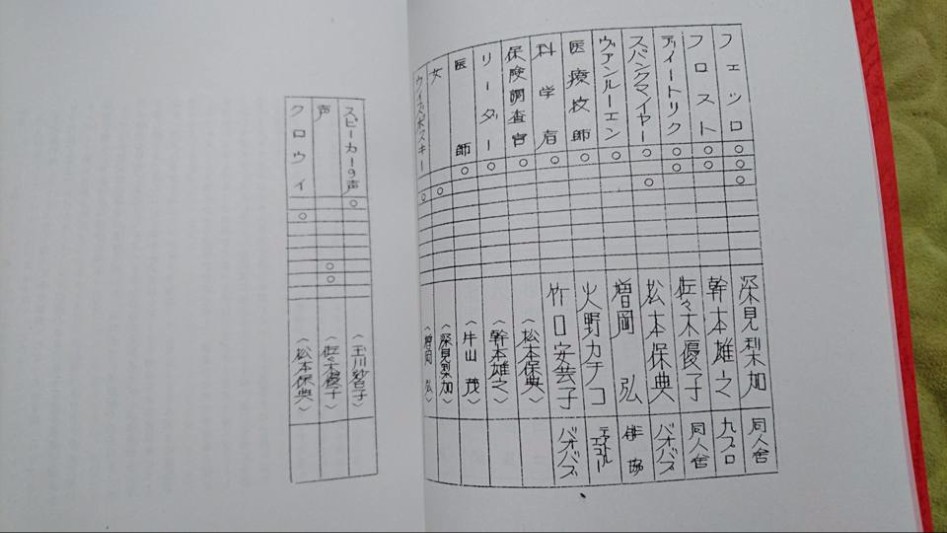 フェツロ ○○○ 深見梨加 同人舎
フロスト ○○ 幹本雄之 九プロ
アイートリック ○○ 佐々木優子 同人舎
スパンクマイヤー ○○ 松本保典 バオバブ
ヴァンルーエン ○ 増岡弘 俳協
医療技師 ○ 火野カチコ テアトルエコー
科学者 ○ 竹口安芸子 バオバブ
保険調査官 ○ 〈松本保典〉
リーダー ○ 〈幹本雄之〉
医師 ○ 〈牛山茂〉
女 ○ 〈深見梨加〉
ウイズボスキー ○ 〈増岡弘〉
スピーカーの声 ○ 〈玉川紗己子〉
声 ○○ 〈佐々木優子〉
クロウイ ○ 〈松本保典〉